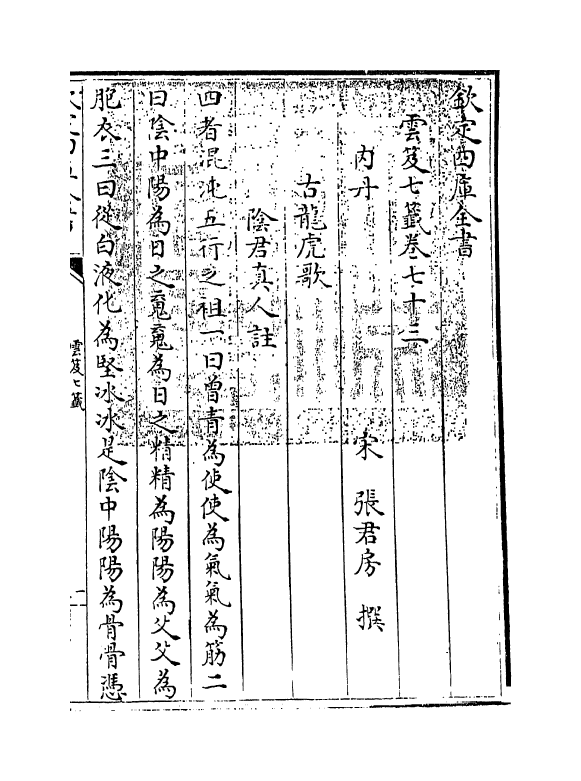 欽定四庫全書
雲笈七籤卷七十三
宋 張君房 撰
內丹
古龍虎歌
陰君真人註
四者混沌五行之祖一曰曾青為使使為氣氣為筋二
曰陰中陽為日之䰟䰟為日之精精為陽陽為父父為
胞衣三曰從白液化為堅冰冰是陰中陽陽為骨骨憑
雲笈七籤